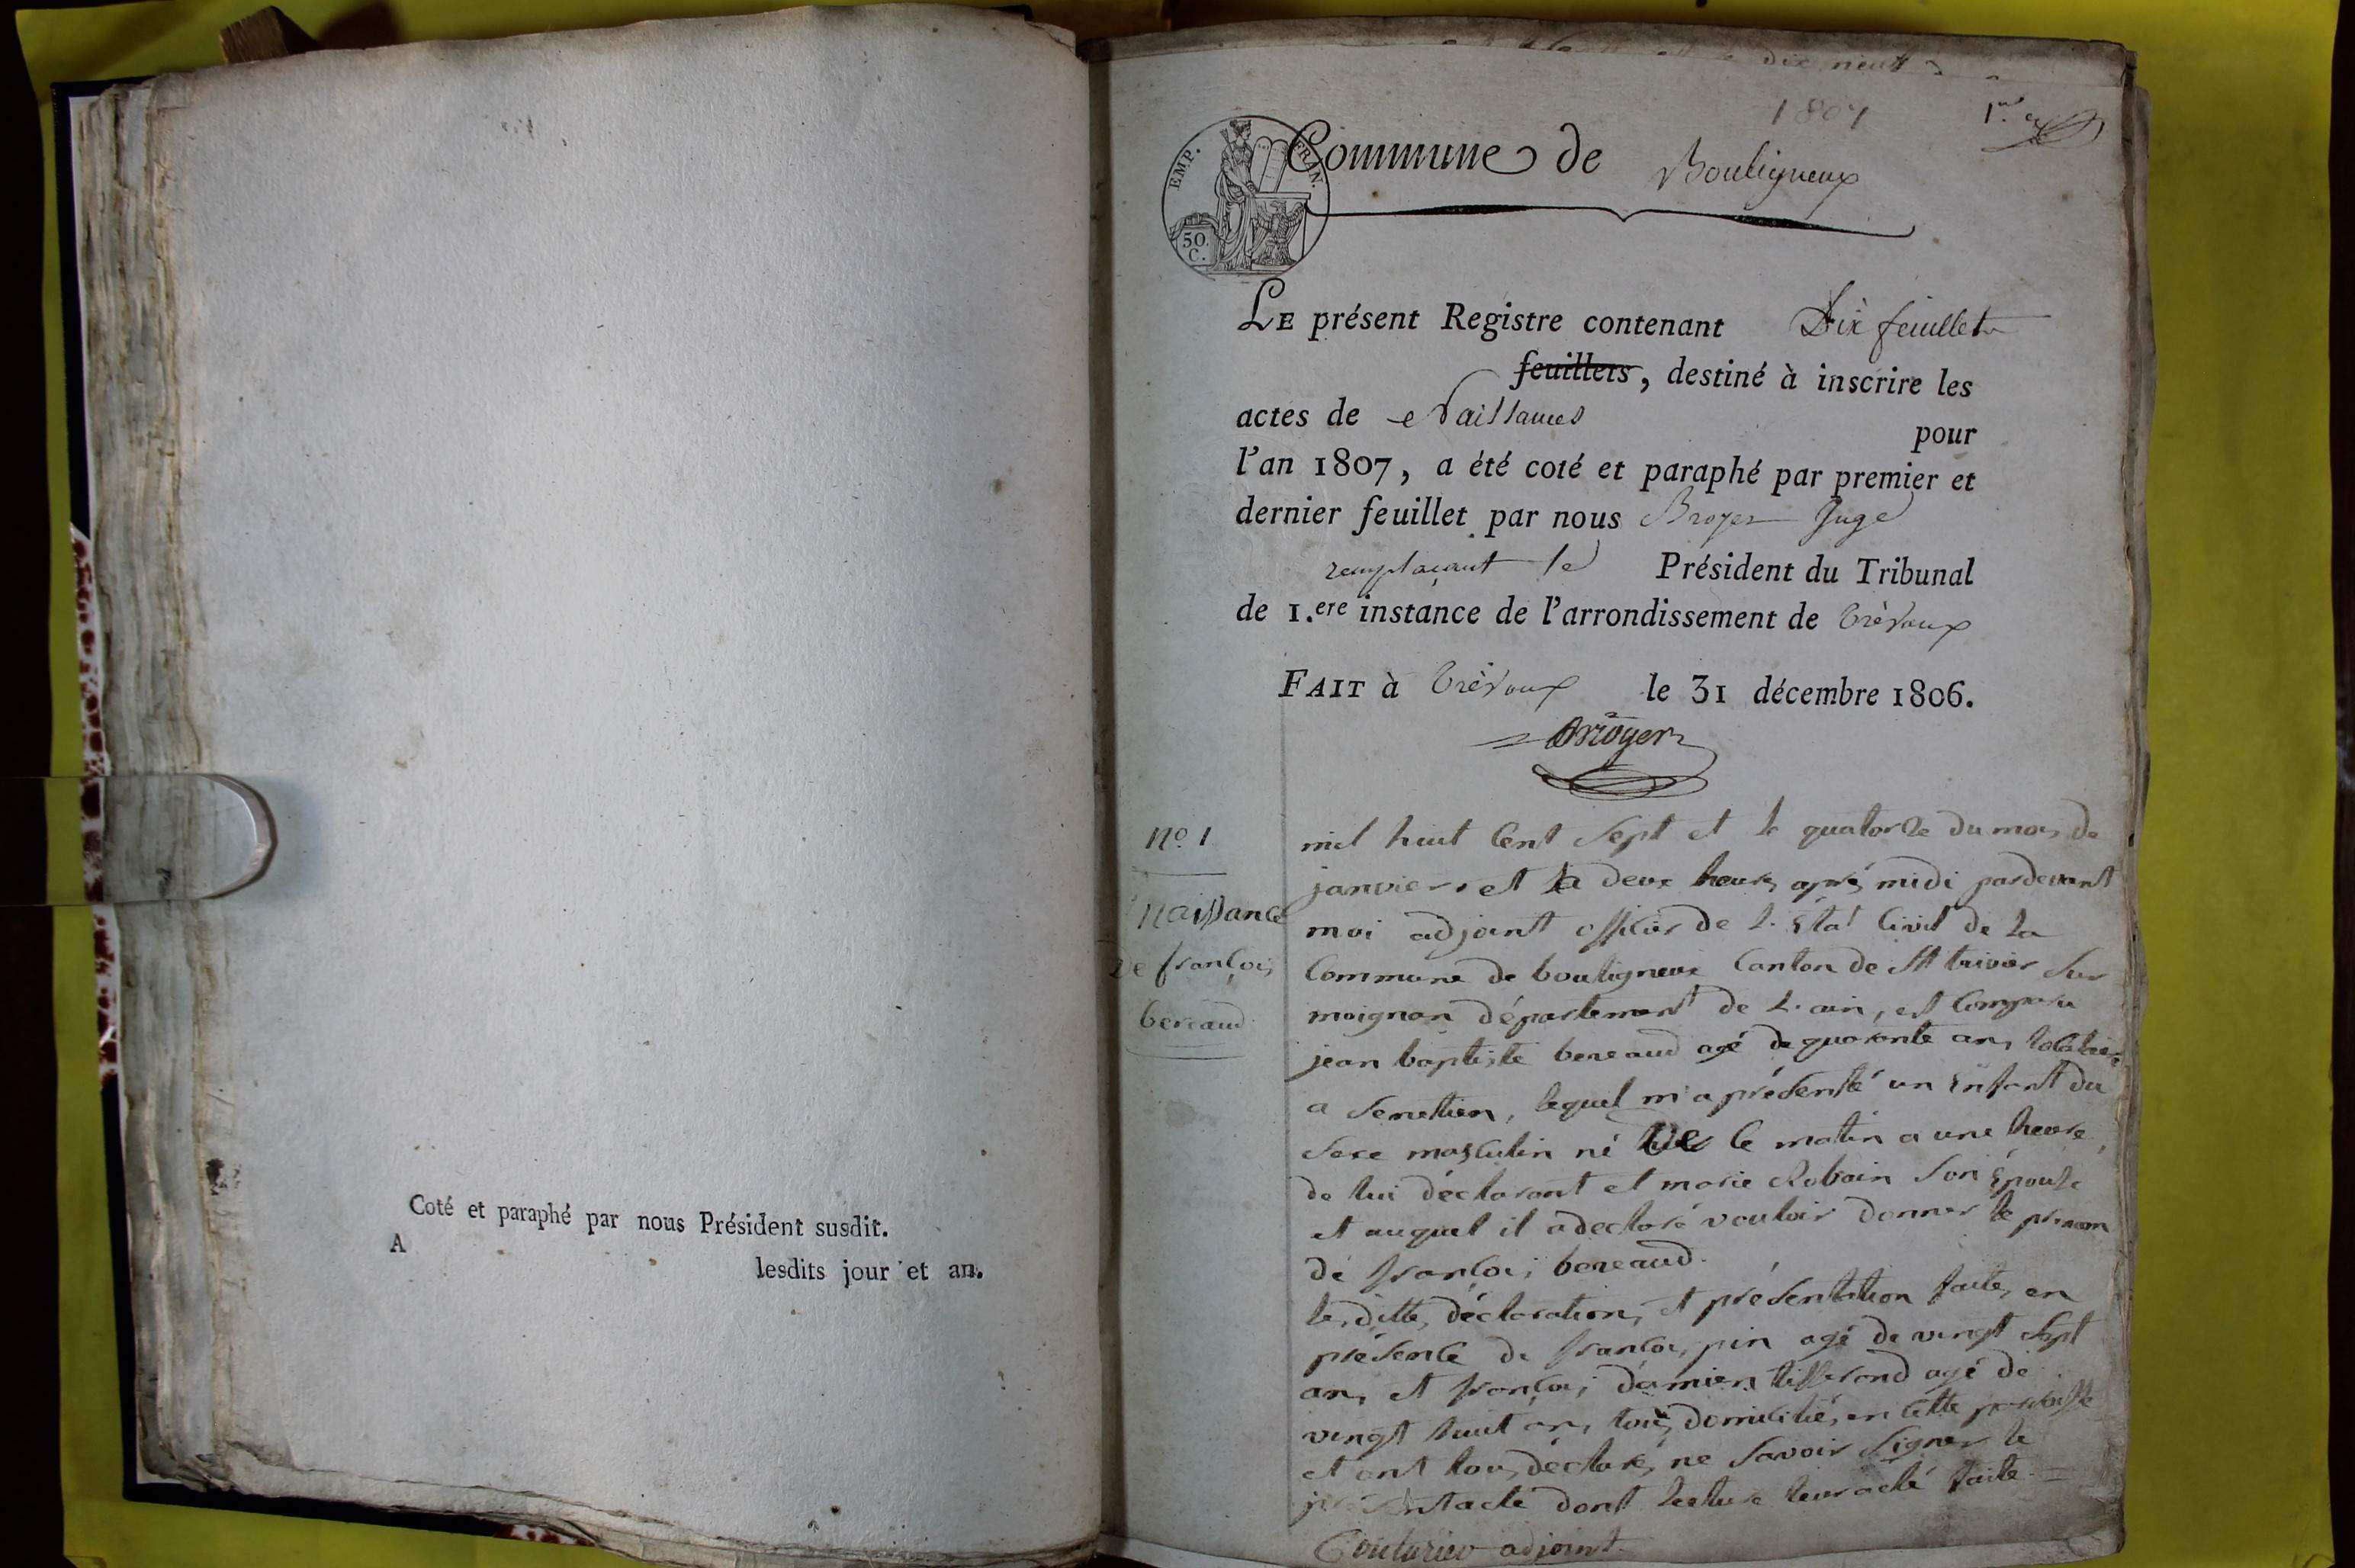 Coté et paraphé par nous Président susdit.
A
lesdits jour et an.
dix neuf
1807
1er
EMP. FRAN.
50.
C.
Commune de Bouligneux
LE présent Registre contenant Dix feuillets
feuillets, destiné à inscrire les
actes de Naissances
pour
l'an 1807, a été coté et paraphé par premier et
dernier feuillet par nous Broyer Juge
remplaçant le Président du Tribunal
de 1.ere instance de l'arrondissement de Trévoux
FAIT à Trévoux le 31 décembre 1806.
Broyer
No. 1
Naissance
de françois
bereaud
mil huit Cent Sept et le quatorze du mois de
janvier et a deux heures après midi pardevant
moi adjoint officier de L'État Civil de La
Commune de bouligneux Canton de St trivier Sur
moignan département de L'ain, est Comparu
jean baptiste bereaud agé de quarante ans
a lequel m'a présenté un Enfant du
Sexe masculin né le matin a une heure,
de lui déclarant et marie Robain Son Épouse
et auquel il a déclaré vouloir donner le prenom
de françois bereaud.
lesdittes déclaration, et présentation faites en
présence de françois pin agé de vingt Sept
ans et françois damien tisserand agé de
vingt huit ans, tous domicilié, en Cette paroisse
et ont tous déclaré, ne Savoir Signer le
présent acte dont lecture leur a été faite
Couturier adjoint